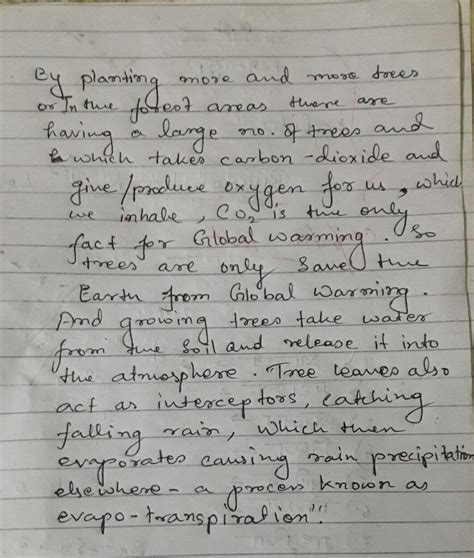 By planting more and more trees
or In the forest areas there are
having a large no. of trees and
which takes carbon-dioxide and
give/produce oxygen for us, which
we inhale, CO2 is the only
fact for Global warming. So
trees are only Save the
Earth from Global Warming.
And growing trees take water
from the soil and release it into
the atmosphere. Tree leaves also
act as interceptors, catching
falling rain, which then
evaporates causing rain precipitation
elsewhere - a process known as
evapo-transpiration"!